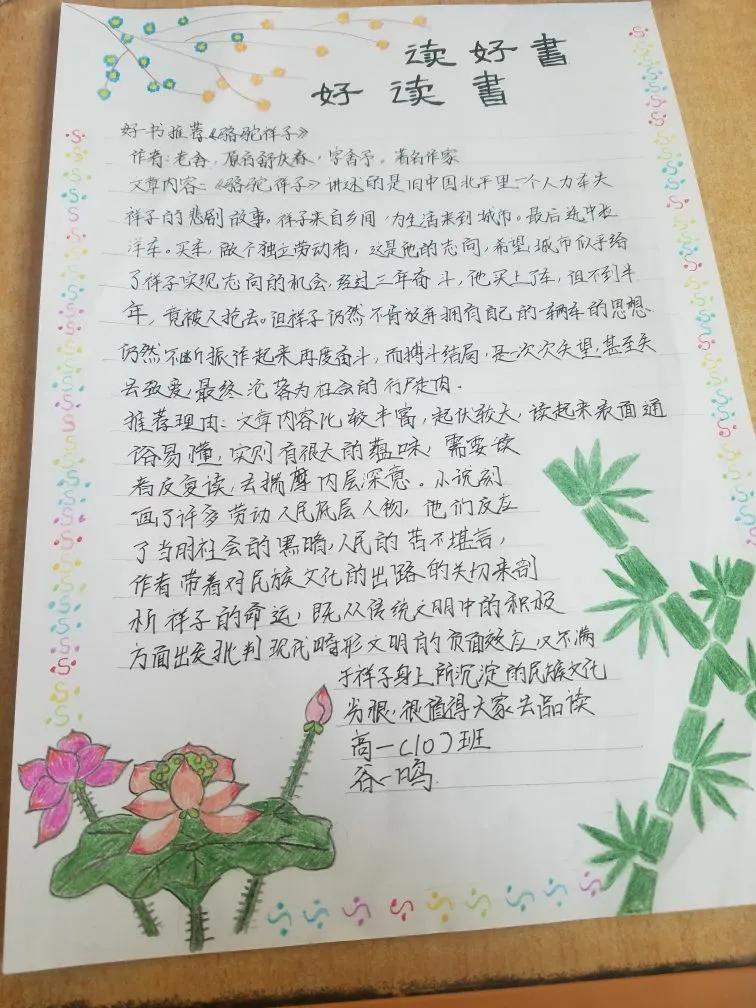 读好書
好读書
好书推荐《骆驼祥子》
作者:老舍,原名舒庆春,字舍予。著名作家
文章内容:《骆驼祥子》讲述的是旧中国北平里一个人力车夫
祥子的悲剧故事。祥子来自乡间,为生活来到城市。最后选中拉
洋车。买车,做个独立劳动者,这是他的志向,希望,城市似乎给
了祥子实现志向的机会,经过三年奋斗,他买上了车,但不到半
年,竟被人抢去。但祥子仍然不肯放弃拥有自己的一辆车的思想
仍然不断振作起来再度奋斗,而搏斗结局,是一次次失望,甚至失
去致爱,最终沦落为社会的行尸走肉.
推荐理由:文章内容比较丰富,起伏较大,读起来表面通
俗易懂,实则有很大的蕴味,需要读
者反复读,去揣摩内层深意。小说刻
画了许多劳动人民底层人物,他们反应
了当时社会的黑暗,人民的苦不堪言,
作者带着对民族文化的出路的关切来剖
析祥子的命运,既从传统文明中的积极
方面出发批判现代畸形文明的负面效应,又不满
于祥子身上所沉淀的民族文化
劣根,很值得大家去品读
高一(10)班
谷一鸣